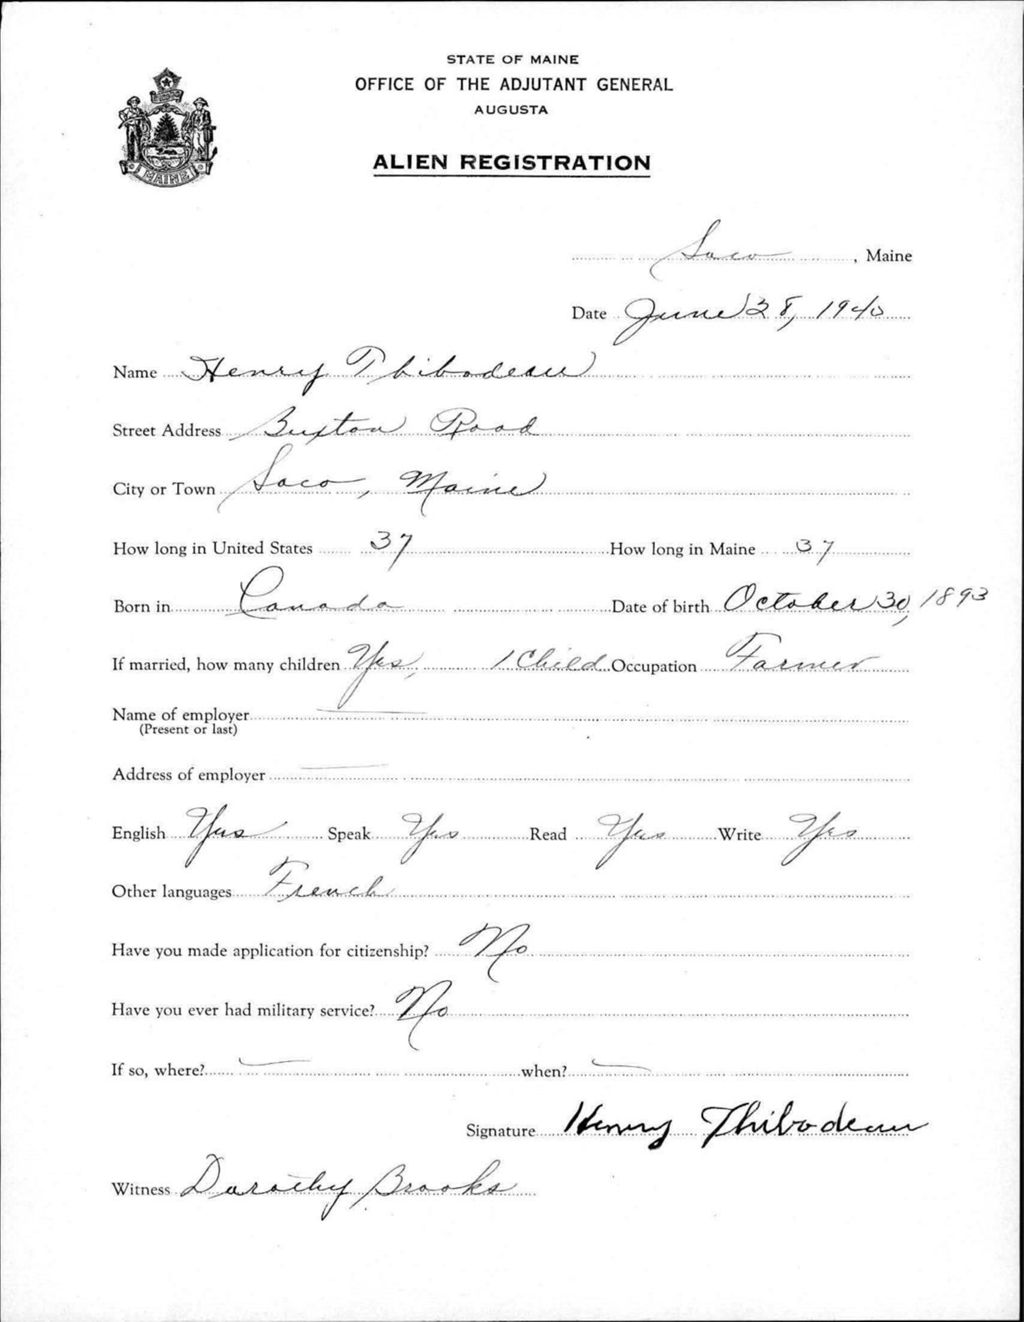 STATE OF MAINE
OFFICE OF THE ADJUTANT GENERAL
AUGUSTA
ALIEN REGISTRATION
MAINE
Saco, Maine
Date June 28, 1940
Name Henry Thibodeau
Street Address Buxton Road
City or Town Saco, Maine
How long in United States 37 How long in Maine 37
Born in Canada Date of birth October 30, 1893
If married, how many children Yes, 1 Child Occupation Farmer
Name of employer —
(Present or last)
Address of employer —
English Yes Speak Yes Read Yes Write Yes
Other languages French
Have you made application for citizenship? No
Have you ever had military service? No
If so, where? — when? —
Signature Henry Thibodeau
Witness Dorothy Brooks